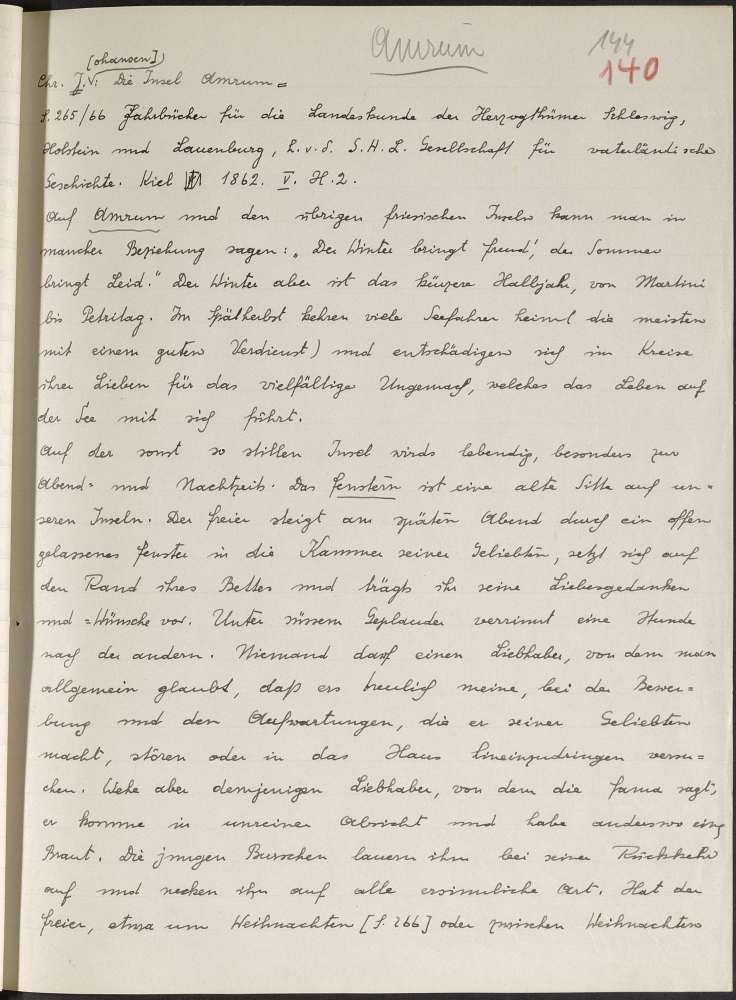 Amrum
144
140
[ohansen])
Chr. J. V: Die Insel Amrum =
S. 265/66 Jahrbücher für die Landeskunde der Herzogthümer Schleswig,
Holstein und Lauenburg, h. v. d. S. H. L. Gesellschaft für vaterländische
Geschichte. Kiel 1862. V. H. 2.
Auf Amrum und den übrigen friesischen Inseln kann man in
mancher Beziehung sagen: „Der Winter bringt Freud', der Sommer
bringt Leid." Der Winter aber ist das kürzere Halbjahr, von Martini
bis Petritag. Im Spätherbst kehren viele Seefahrer heim (die meisten
mit einem guten Verdienst) und entschädigen sich im Kreise
ihrer Lieben für das vielfältige Ungemach, welches das Leben auf
der See mit sich führt.
Auf der sonst so stillen Insel wirds lebendig, besonders zur
Abend= und Nachtzeit. Das Fenstern ist eine alte Sitte auf un=
seren Inseln. Der Freier steigt am späten Abend durch ein offen
gelassenes Fenster in die Kammer seiner Geliebten, setzt sich auf
den Rand ihres Bettes und trägt ihr seine Liebesgedanken
und =Wünsche vor. Unter süssem Geplauder verrinnt eine Stunde
nach der andern. Niemand darf einen Liebhaber, von dem man
allgemein glaubt, daß ers treulich meine, bei der Bewer=
bung und den Aufwartungen, die er seiner Geliebten
macht, stören oder in das Haus hineinzudringen versu=
chen. Wehe aber demjenigen Liebhaber, von dem die Fama sagt,
er komme in unreiner Absicht und habe anderswo eine
Braut. Die jungen Burschen lauern ihm bei seiner Rückkehr
auf und necken ihn auf alle ersinnliche Art. Hat der
Freier, etwa um Weihnachten [S. 266] oder zwischen Weihnachten